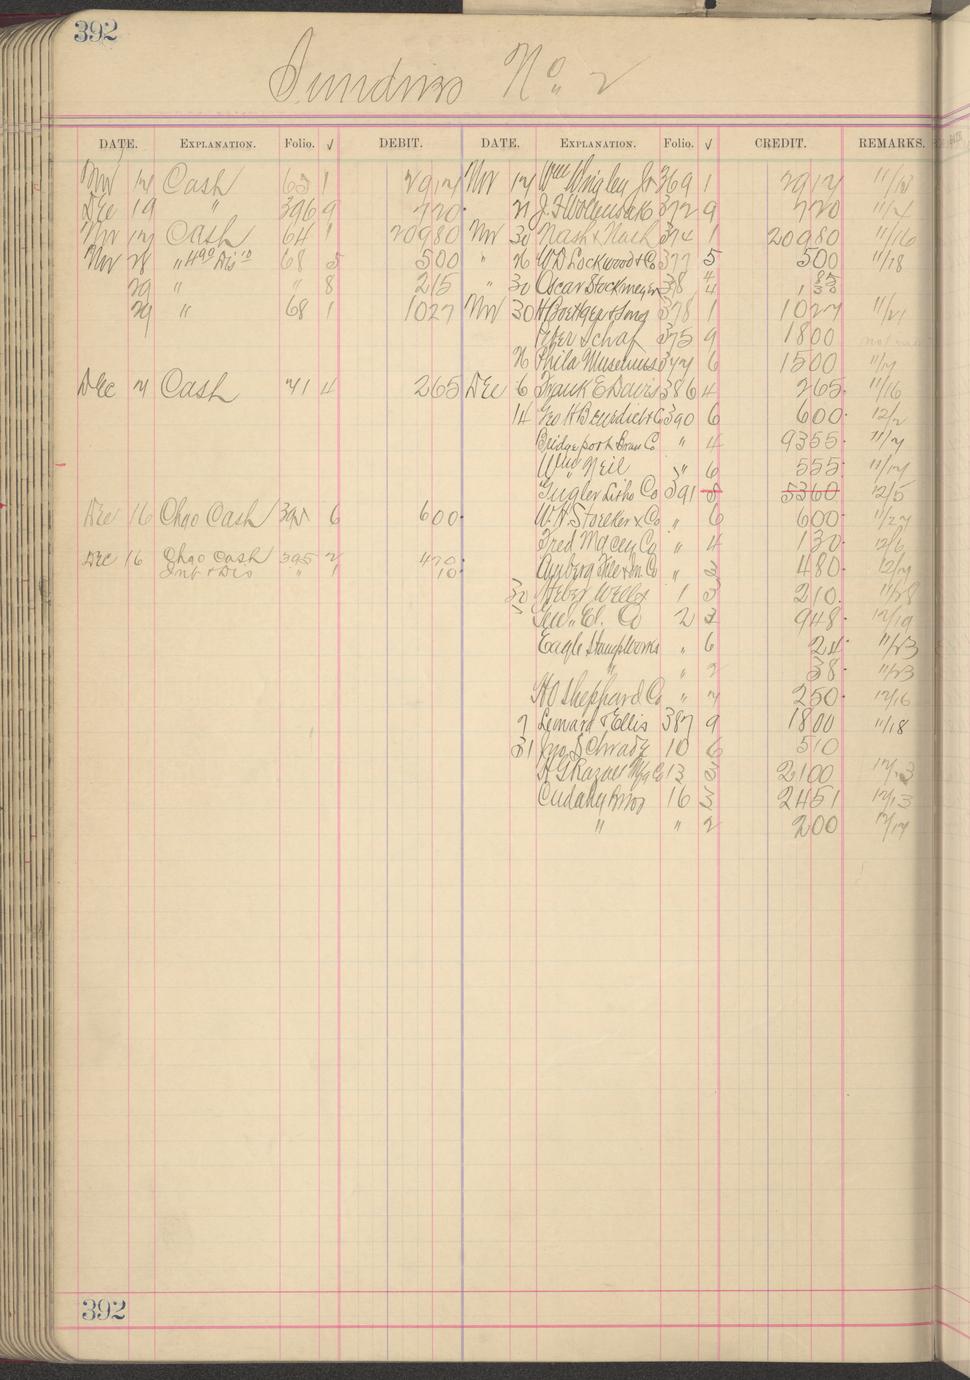 392
Sundries No. 2
DATE. EXPLANATION. Folio. √ DEBIT. DATE. EXPLANATION. Folio. √ CREDIT. REMARKS.
Nov 17 Cash 63 1 2917 Nov 17 Wm Wrigley Jr 369 1 2917 11/13
Dec 19 " 396 9 720 21 J. F. Wollensak 372 9 720 11/4
Nov 17 Cash 64 1 20980 Nov 30 Nash & Nash 374 1 20980 11/16
Nov 28 " 68 5 500 " 26 W D Lockwood & Co 377 5 500 11/18
29 " " 8 215 " 30 Oscar Stockmeyer 378 4
29 " 68 1 1027 Nov 30 H Boettger & Song 378 1 1027 11/21
Peter Schaf 375 9 1800
26 Phila Museums 377 6 1500 11/7
Dec 7 Cash 71 4 265 Dec 6 Frank E Davis 386 4 265 11/16
14 Geo H Benedict & Co 390 6 600 12/2
Bridgeport Brass Co " 4 9355 11/7
Wm Neil " 6 555 11/17
Gugler Litho Co 391 8 5360 12/5
Dec 16 Chgo Cash 392 6 600 W. H. Stoelker & Co " 6 600 11/27
Fred Macey Co " 4 130 12/6
Dec 16 Chgo Cash 395 2 470 " 3 480 12/7
Int & Dis " 1 10
30 Heber Wells 1 3 210 11/28
5 Gen. El. Co 2 3 948 12/19
Eagle Stamp Works " 6 24 11/23
" " 2 38 11/23
H O Shephard Co " 7 250 12/16
7 Leonard & Ellis 387 9 1800 11/18
31 Jno S Chrade 10 6 510
Mfg Co 13 3 2100 12/3
Cudahy Bros 16 3 2451 12/13
" " 2 200 12/17
392